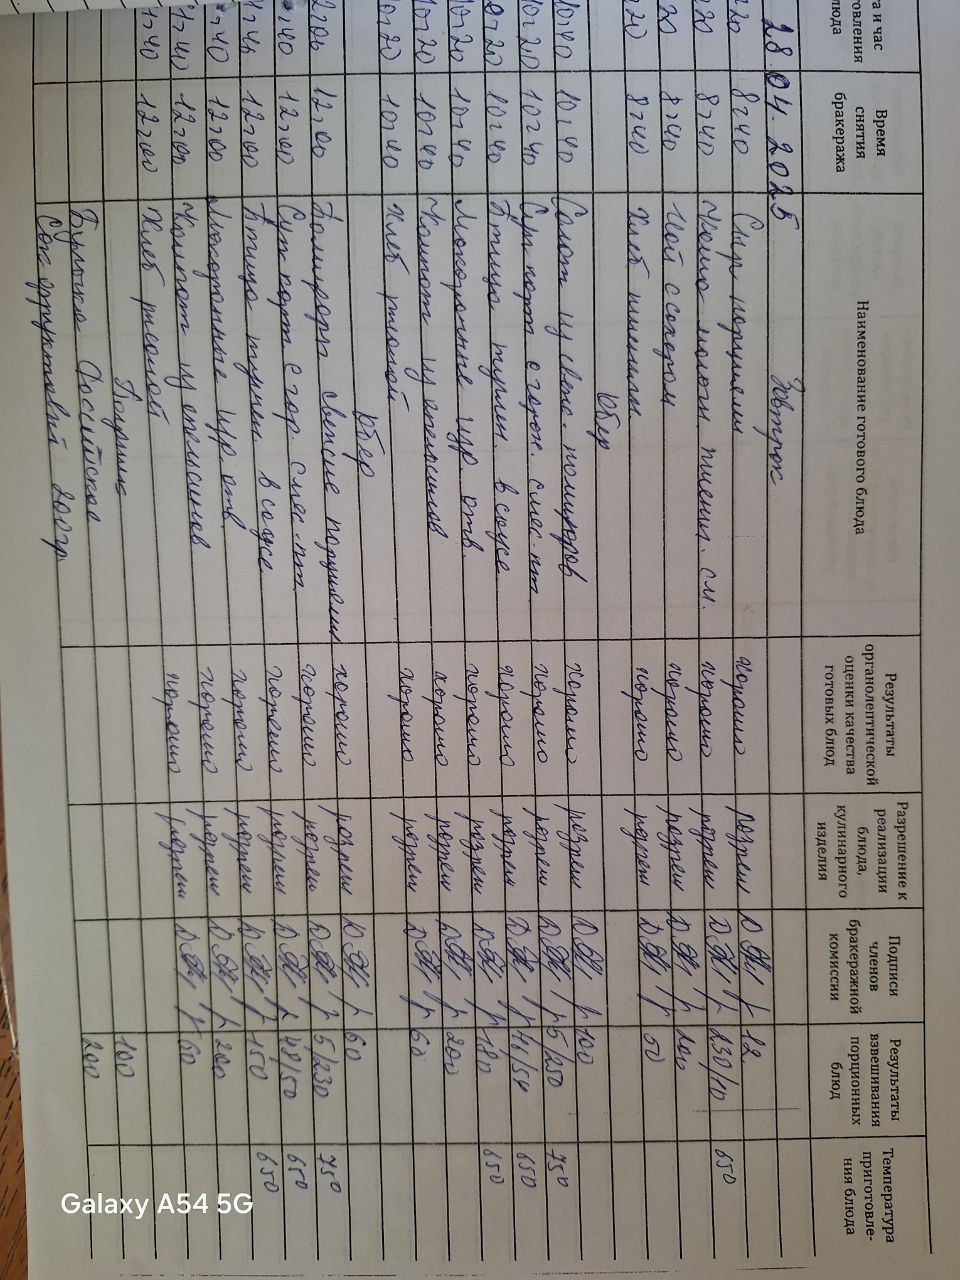 та и час
товления
блюда
Время
снятия
бракеража
Наименование готового блюда
Результаты
органолептической
оценки качества
готовых блюд
Разрешение к
реализации
блюда,
кулинарного
изделия
Подписи
членов
бракеражной
комиссии
Результаты
взвешивания
порционных
блюд
Температура
приготовле-
ния блюда
28.04.2025 Завтрак
20 8-40 Сыр порциями хорошо разреш 12
20 8-40 Каша молочн. пшенн. см. хорошо разреш 230/10 65°
20 8-40 Чай с сахаром хорошо разреш 200
20 8-40 Хлеб пшеничн хорошо разреш 50
Обед
10-40 10-40 Салат из свеж. помидоров хорошо разреш 100
10-20 10-40 Суп карт с горох. смес-пт хорошо разреш 5/250 75°
10-20 10-40 Птица тушен. в соусе хорошо разреш 65°
10-20 10-40 Макаронные изд. отв. хорошо разреш 180 65°
10-20 10-40 Компот из апельсинов хорошо разреш 200
10-20 10-40 Хлеб ржаной хорошо разреш 60
Обед
12-00 Помидоры свежие порциями хорошо разреш 60
40 12-00 Суп карт с гор. смес-пт хорошо разреш 5/230 75°
40 12-00 Птица тушен в соусе хорошо разреш 48/50 65°
40 12-00 Макаронные изд отв хорошо разреш 150 65°
40 12-00 Компот из апельсинов хорошо разреш 200
40 12-00 Хлеб ржаной хорошо разреш 60
Полдник
Булочка Российская 100
Сок фруктовый 200гр. 200
Galaxy A54 5G